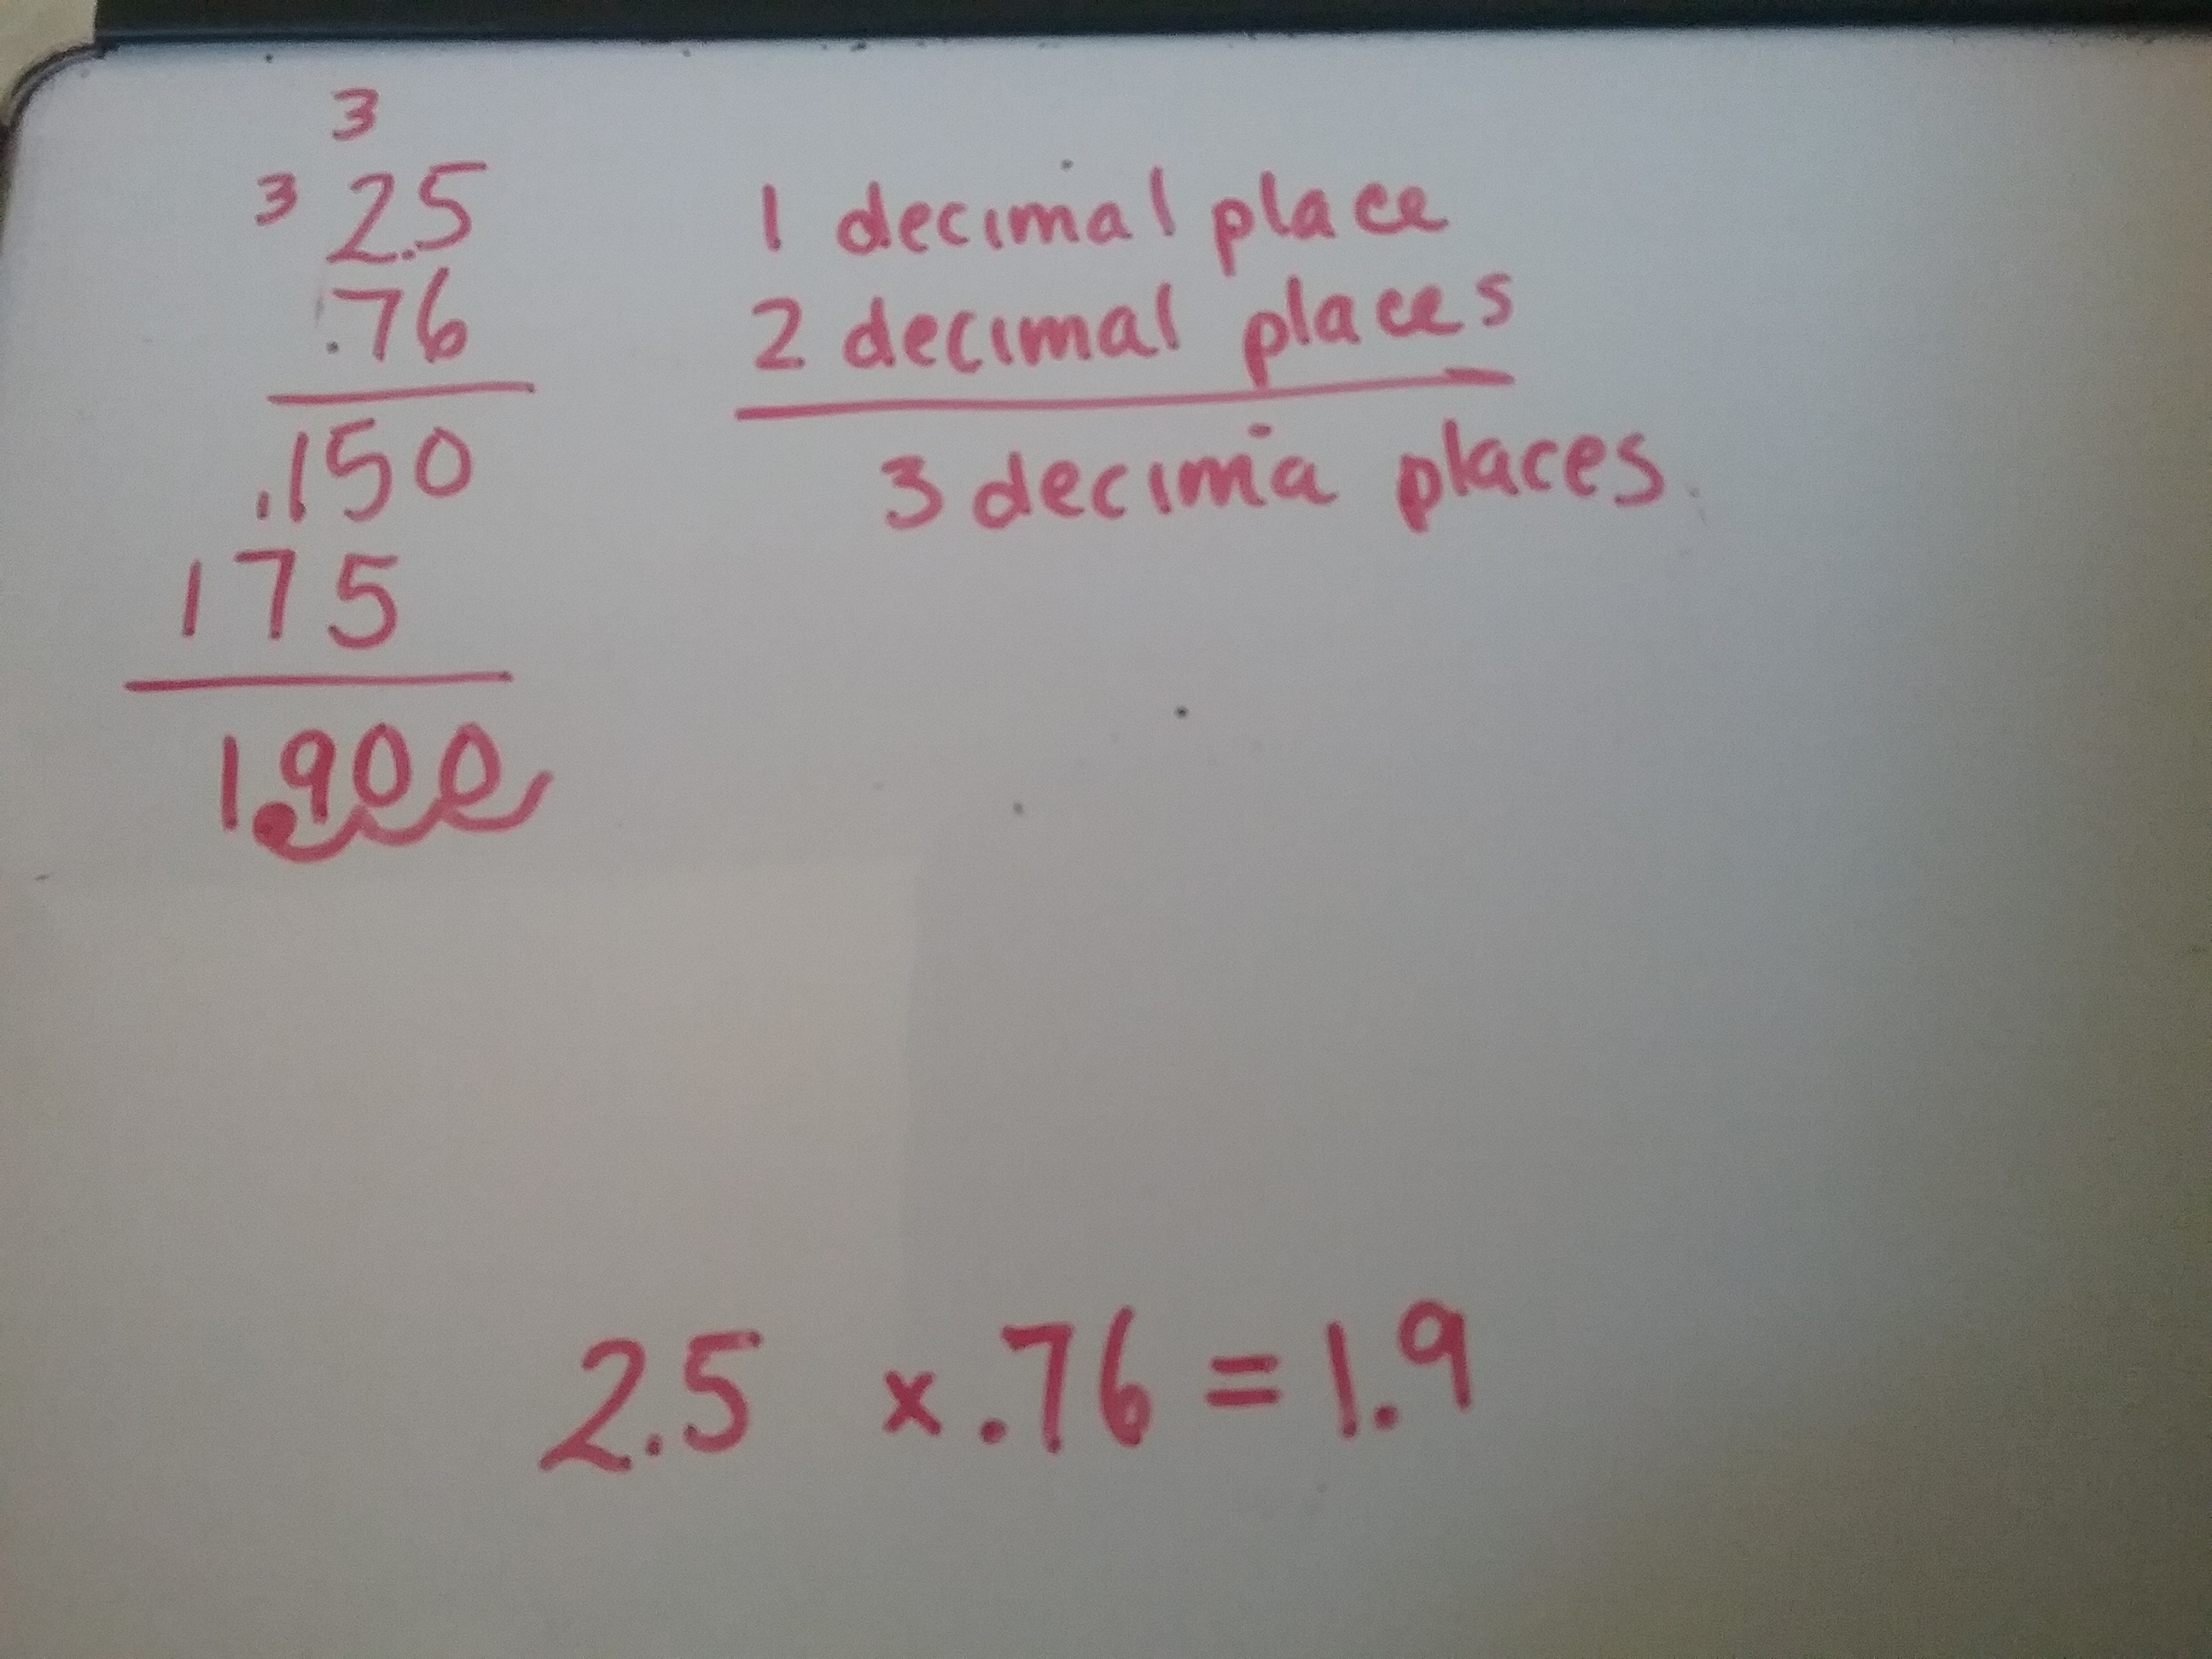 3
3 2.5 1 decimal place
.76 2 decimal places
.150 3 decima places
175
1.900
2.5 x .76 = 1.9